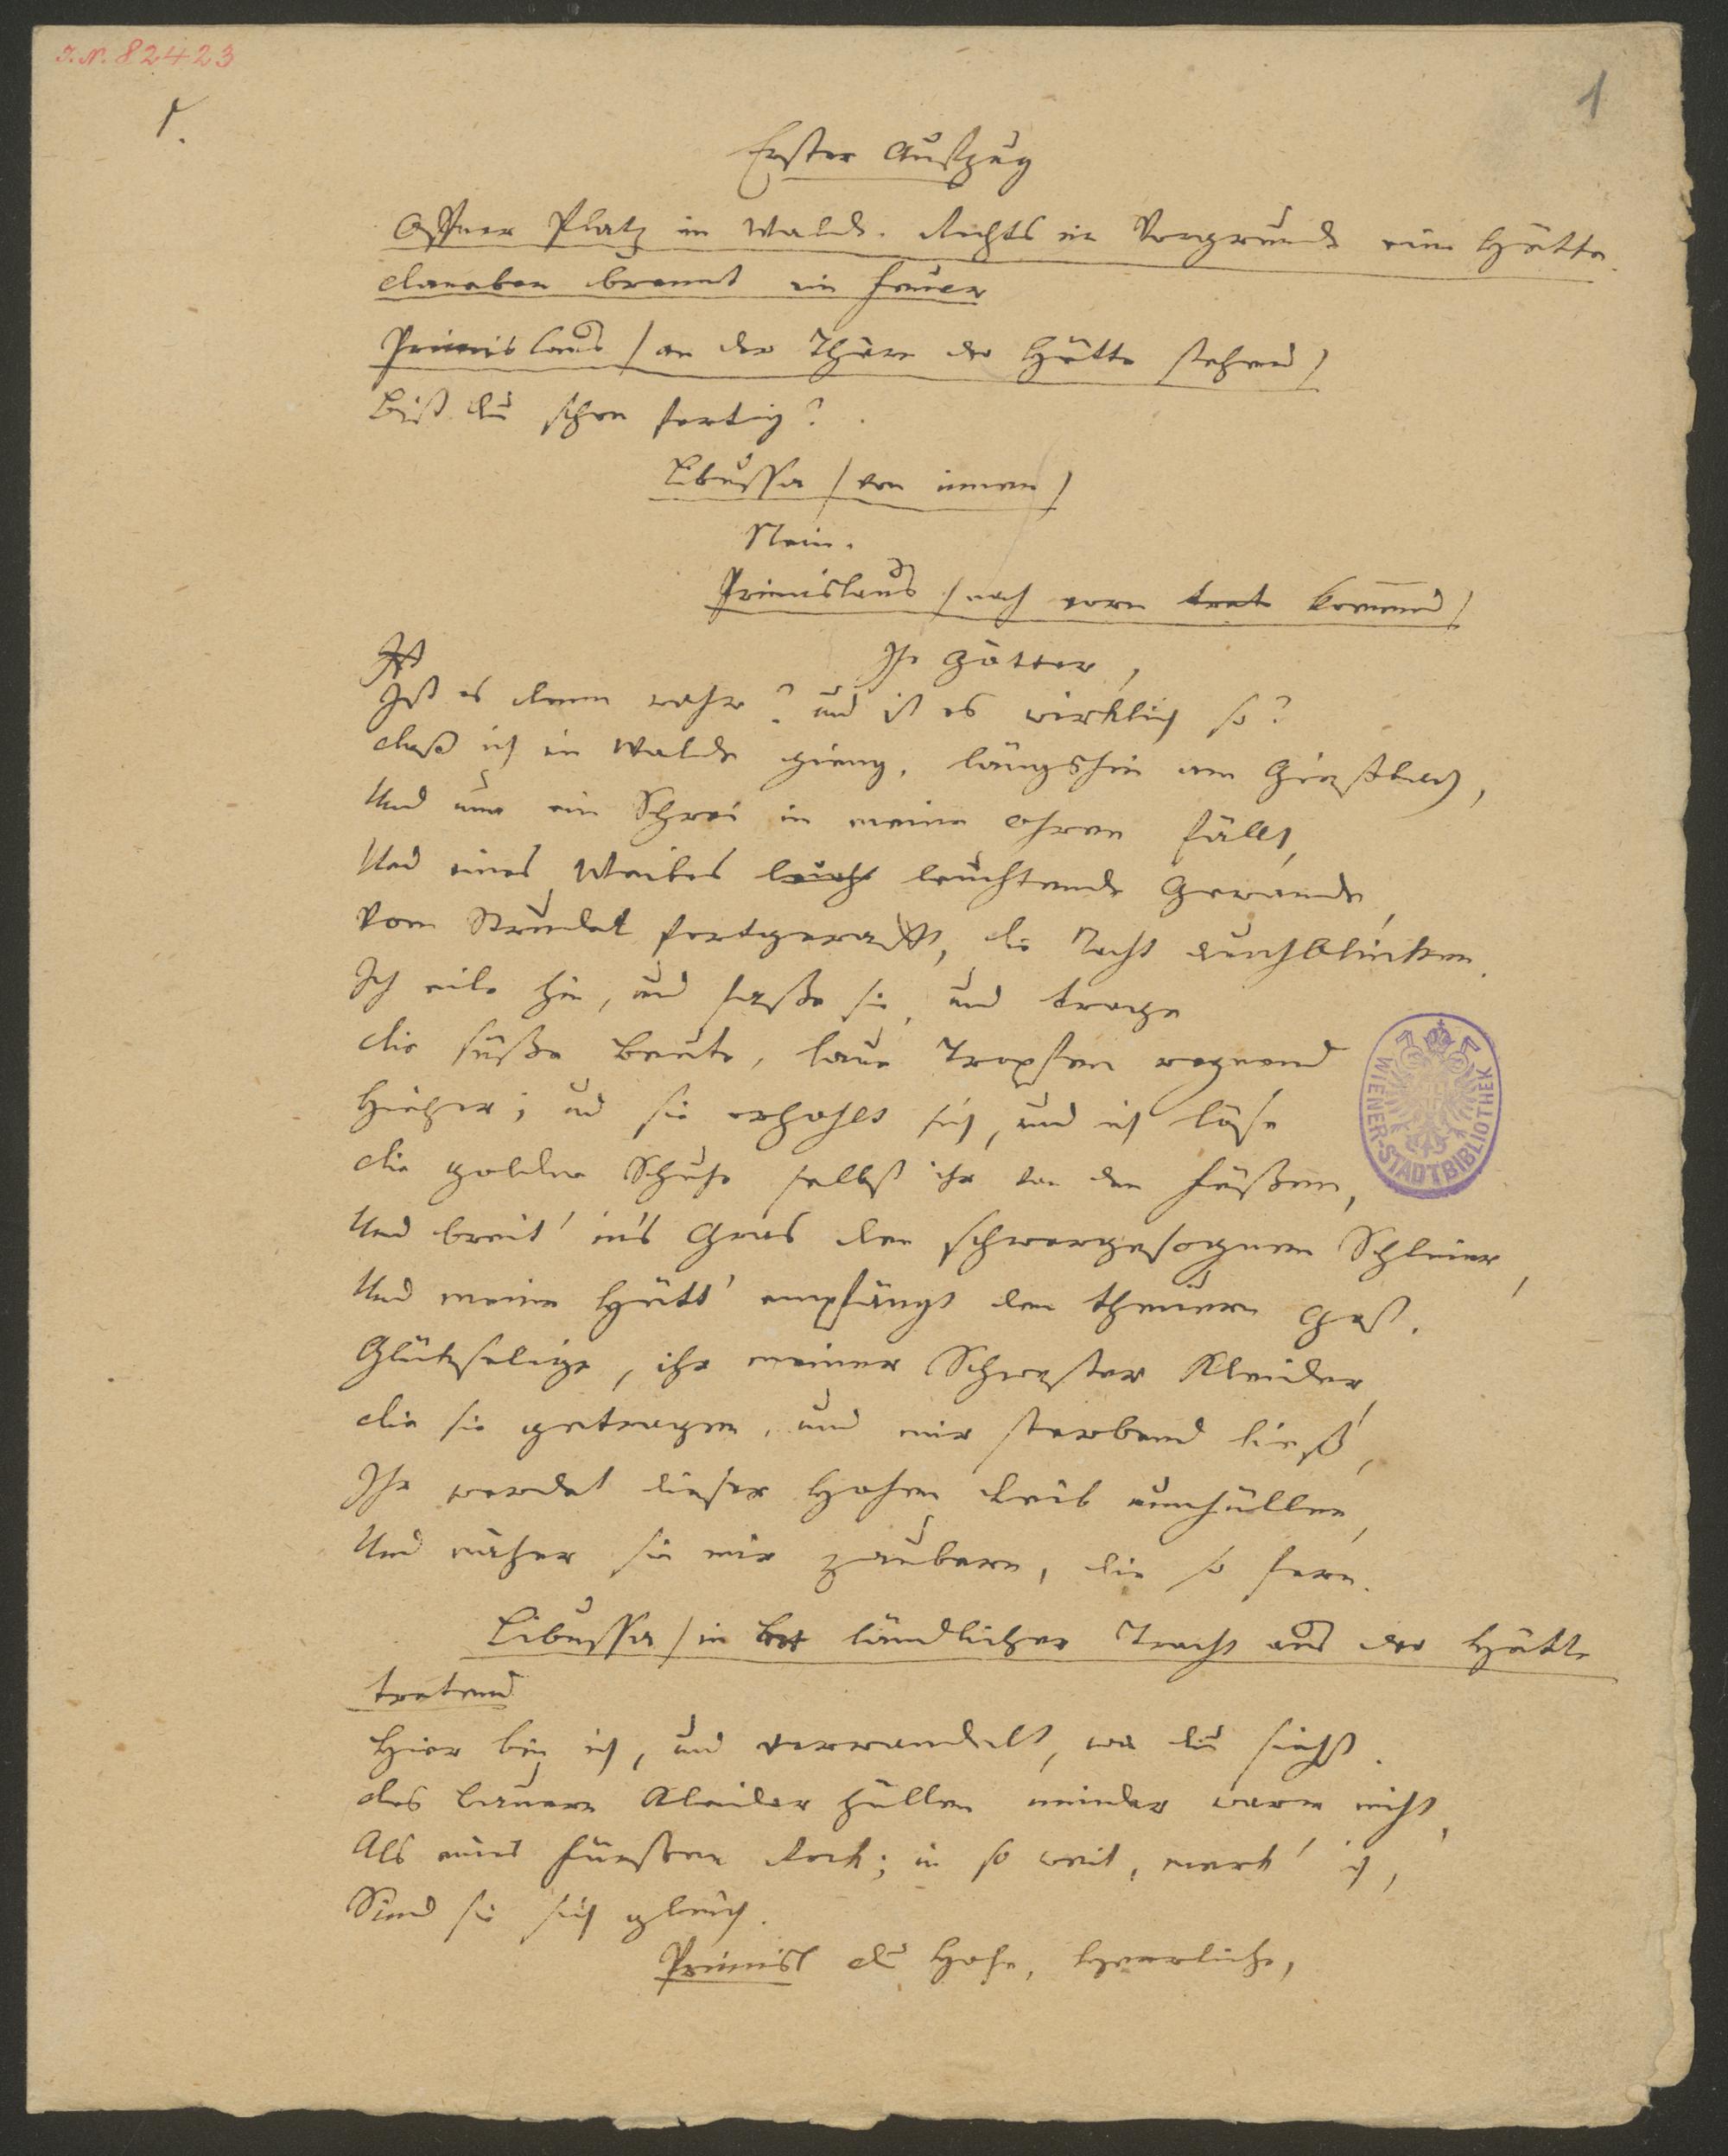 I. N. 82423
1.
1
Erster Aufzug
Offner Platz im Walde. Rechts im Vorgrunde eine Hütte.
daneben brennt ein Feuer
Primislaus /an der Thüre der Hütte stehend/
Bist du schon fertig?
Libussa /von innen/
Nein.
Primislaus /nach vorn tret kommend/
Ist
Ihr Götter,
Ist es denn wahr? und ist es wirklich so?
daß ich im Walde gieng, längshin am Gießbach,
Und nun ein Schrei in meine Ohren fällt,
Und eines Weibes leucht leuchtende Gewande,
Vom Strudel fortgerafft, die Nacht durchblinken.
Ich eile hin, und fasse sie, und trage
die süße Beute, laue Tropfen regnend
Hieher; und sie erhohlt sich, und ich löse
die goldnen Schuhe selbst ihr von den Füßen,
Und breit' in's Gras den schwergesognen Schleier,
Und meine Hütt' empfängt den theuern Gast.
Glückselige, ihr meiner Schwester Kleider,
die sie getragen, und mir sterbend ließ,
Ihr werdet dieser Hohen Leib umhüllen,
Und näher sie mir zaubern, die so fern.
Libussa /in ländlicher Tracht aus der Hütte
tretend
Hier bin ich, und verwandelt, wie du siehst.
des Bauern Kleider hüllen minder warm nicht,
Als eines Fürsten Rock; in so weit, merk' ich,
Sind sie sich gleich.
Primisl du Hohe, Herrliche,
WIENER-STADTBIBLIOTHEK